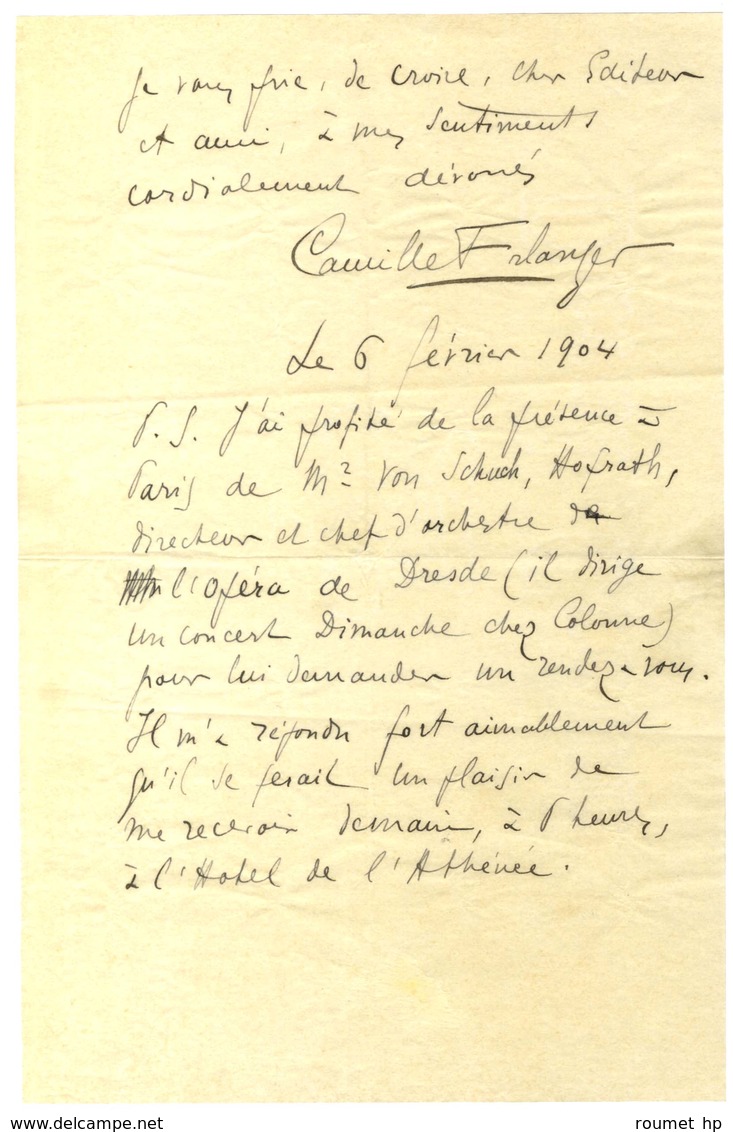 Je vous prie, de croire, cher Editeur
et ami, à mes sentiments
cordialement dévoués
Camille Erlanger
Le 6 février 1904
P. S. J'ai profité de la présence à
Paris de Mr Von Schuch, Hofrath,
directeur et chef d'orchestre de
l'Opéra de Dresde (il dirige
un concert Dimanche chez Colonne)
pour lui demander un rendez-vous.
Il m'a répondu fort aimablement
qu'il se ferait un plaisir de
me recevoir demain, à heures,
à l'Hotel de l'Athénée.
www.delcampe.net
roumet hp